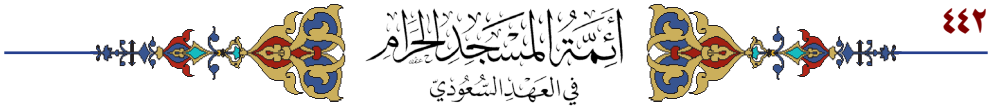 ٤٤٢
أَئِمَّةُ المَسْجِدِ الحَرَامِ
فِي العَهْدِ السُّعُودِيِّ